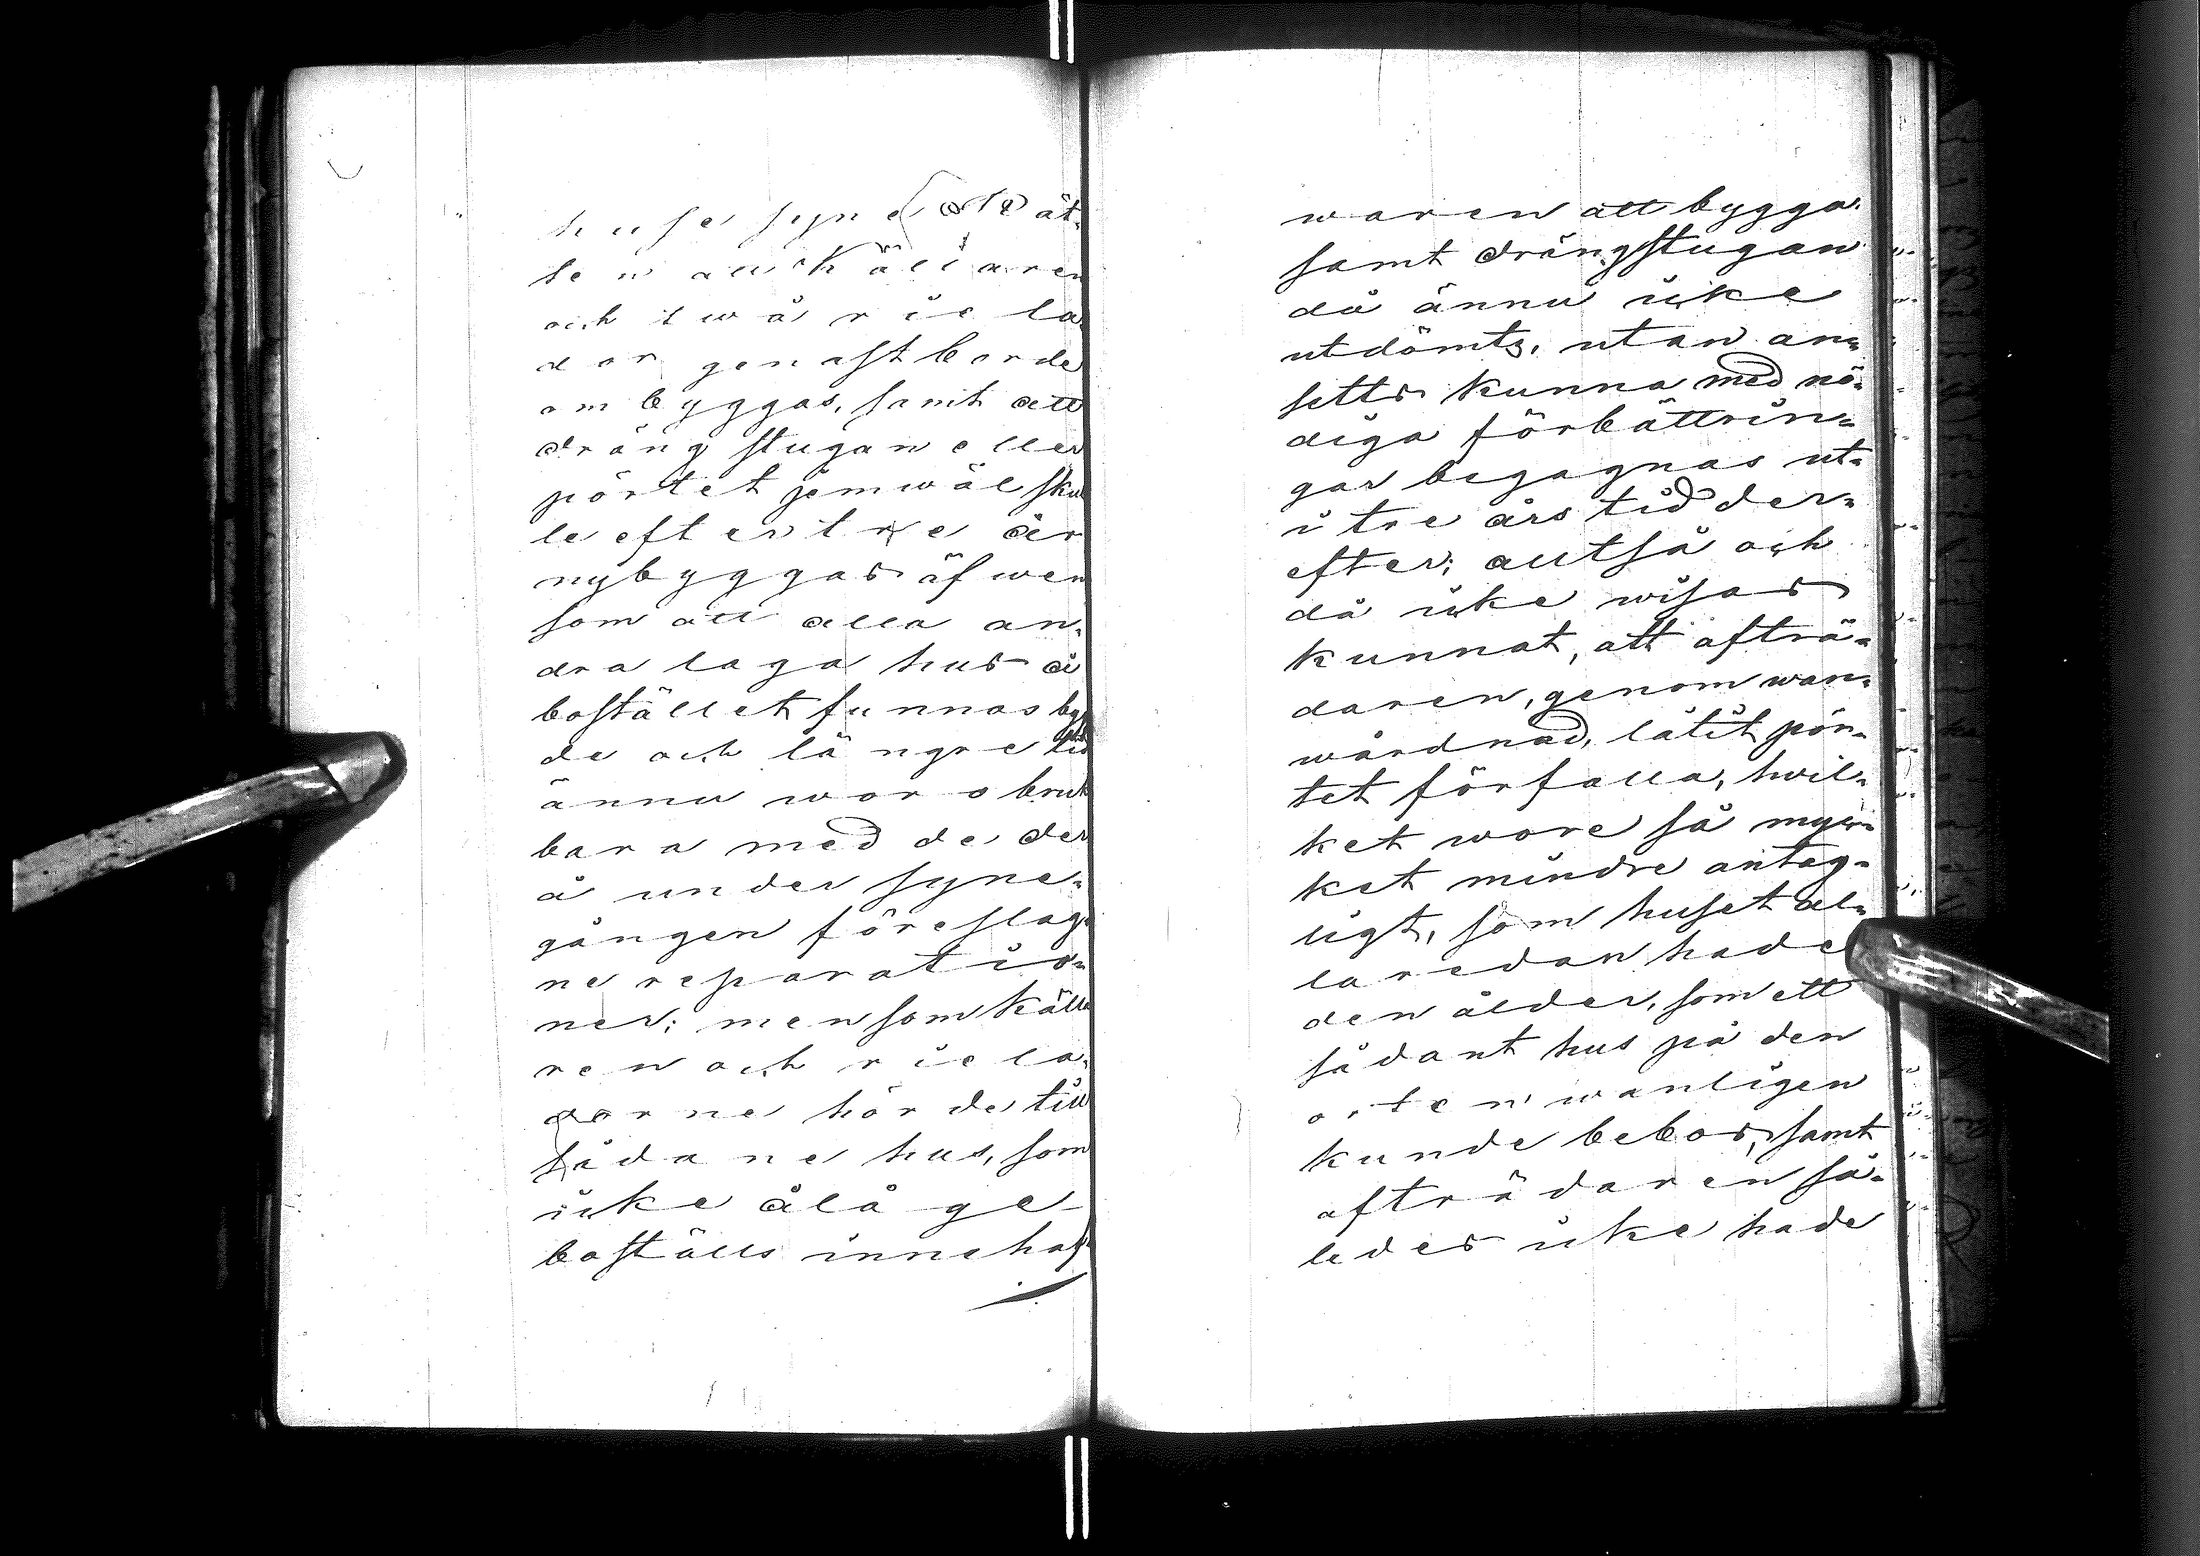 husesyne
sen att Källaren
och twå rie la
dor genast borde
ombyggas, samt att
drängstugan eller
pörtet jemwäl sku
le efter tre år
nybyggas äfwen
som att alla an-
dra laga hus å
bostället funnos byg
de och längre tid
ännu woro bruk
bara med de der
å under syne-
gången föreslag-
ne reparatio-
ner; men som Källa
ren och rie la-
dorne hörde till
sådane hus, som
icke ålåge
boställs innehaf
waren att bygga
samt drängstugan
då ännu icke
utdömts, utan an-
setts kunna med nö-
diga förbättrin-
gar begagnas ut-
i tre års tid der-
efter; alltså och
då icke wisas
kunnat, att afträ-
daren, genom wan-
wårdnad, låtit pör-
tet förfalla, hwil-
ket wore så myc-
ket mindre antag-
ligt, som huset al-
laredan hade
den ålder, som ett
sådant hus på den
orten wanligen
kunde bebos, samt
afträdaren så-
ledes icke hade